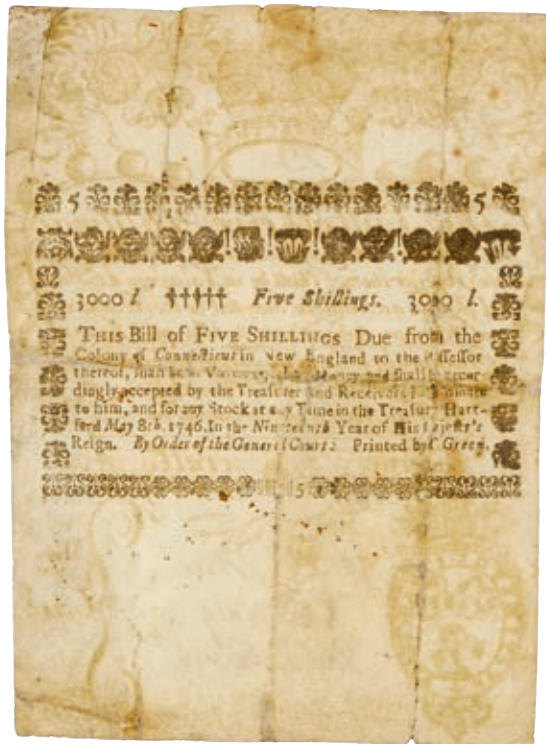 5 5
3000 l. ††††† Five Shillings. 3000 l.
THIS Bill of FIVE SHILLINGS Due from the
Colony of Connecticut in New England to the Possessor
thereof, shall be in and shall be accor-
dingly accepted by the Treasurer and Receivers
to him, and for any Stock at any Time in the Treasury Hart-
ford May 8th, 1746. In the Nineteenth Year of His Majesty's
Reign. By Order of the General Court: Printed by T Green.
5